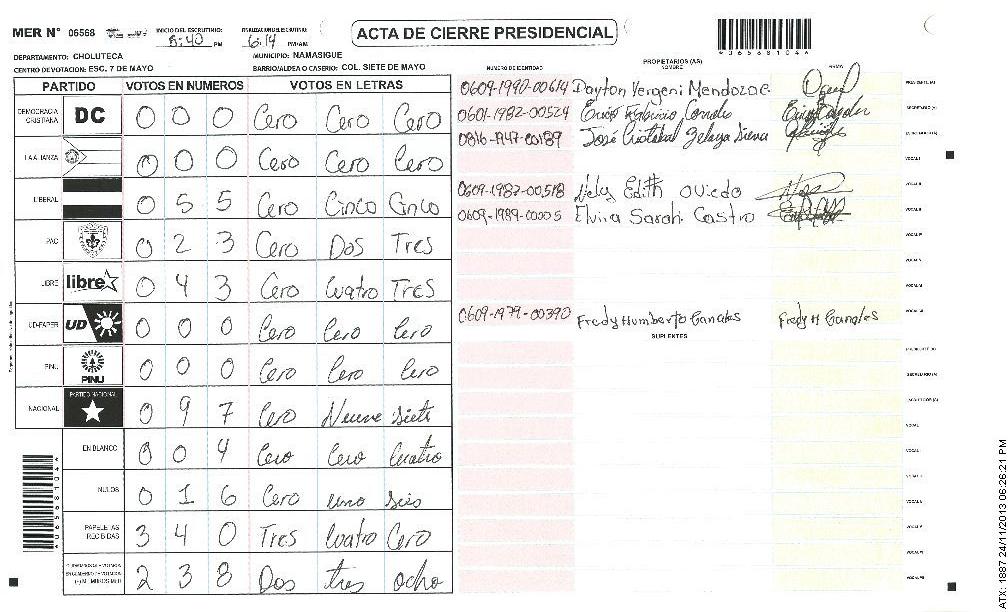 MER N° 06568 INICIO DEL ESCRUTINIO: 5:40 PM FINALIZACION DEL ESCRUTINIO: 6:14 PM/AM
ACTA DE CIERRE PRESIDENCIAL
*06568104*
DEPARTAMENTO: CHOLUTECA MUNICIPIO: NAMASIGUE
CENTRO DE VOTACION: ESC. 7 DE MAYO BARRIO/ALDEA O CASERIO: COL. SIETE DE MAYO
PARTIDO VOTOS EN NUMEROS VOTOS EN LETRAS
DEMOCRACIA CRISTIANA DC 0 0 0 Cero Cero Cero
LA ALIANZA 0 0 0 Cero Cero Cero
LIBERAL 0 5 5 Cero Cinco Cinco
PAC 0 2 3 Cero Dos Tres
LIBRE libre 0 4 3 Cero Cuatro Tres
UD-FAPER UD 0 0 0 Cero Cero Cero
PINU PINU 0 0 0 Cero Cero Cero
NACIONAL PARTIDO NACIONAL 0 9 7 Cero Nueve Siete
EN BLANCO 0 0 4 Cero Cero Cuatro
NULOS 0 1 6 Cero uno Seis
PAPELETAS RECIBIDAS 3 4 0 Tres Cuatro Cero
2 3 8 Dos tres ocho
PROPIETARIOS (AS)
NUMERO DE IDENTIDAD NOMBRE FIRMA
0609-1990-00614 Dayton Yergeni Mendoza PRESIDENTE (A)
0601-1982-00524 SECRETARIO (A)
0816-1947-00189 José Cristobal Zelaya Sierra
VOCAL I
0609-1987-00518 Nely Edith Oviedo VOCAL II
0609-1989-00005 Elvira Sarahi Castro
0609-1979-00390 Fredy Humberto Canales Fredy H Canales
SUPLENTES
*06568104*
ATX: 1887 24/11/2013 06:26:21 PM